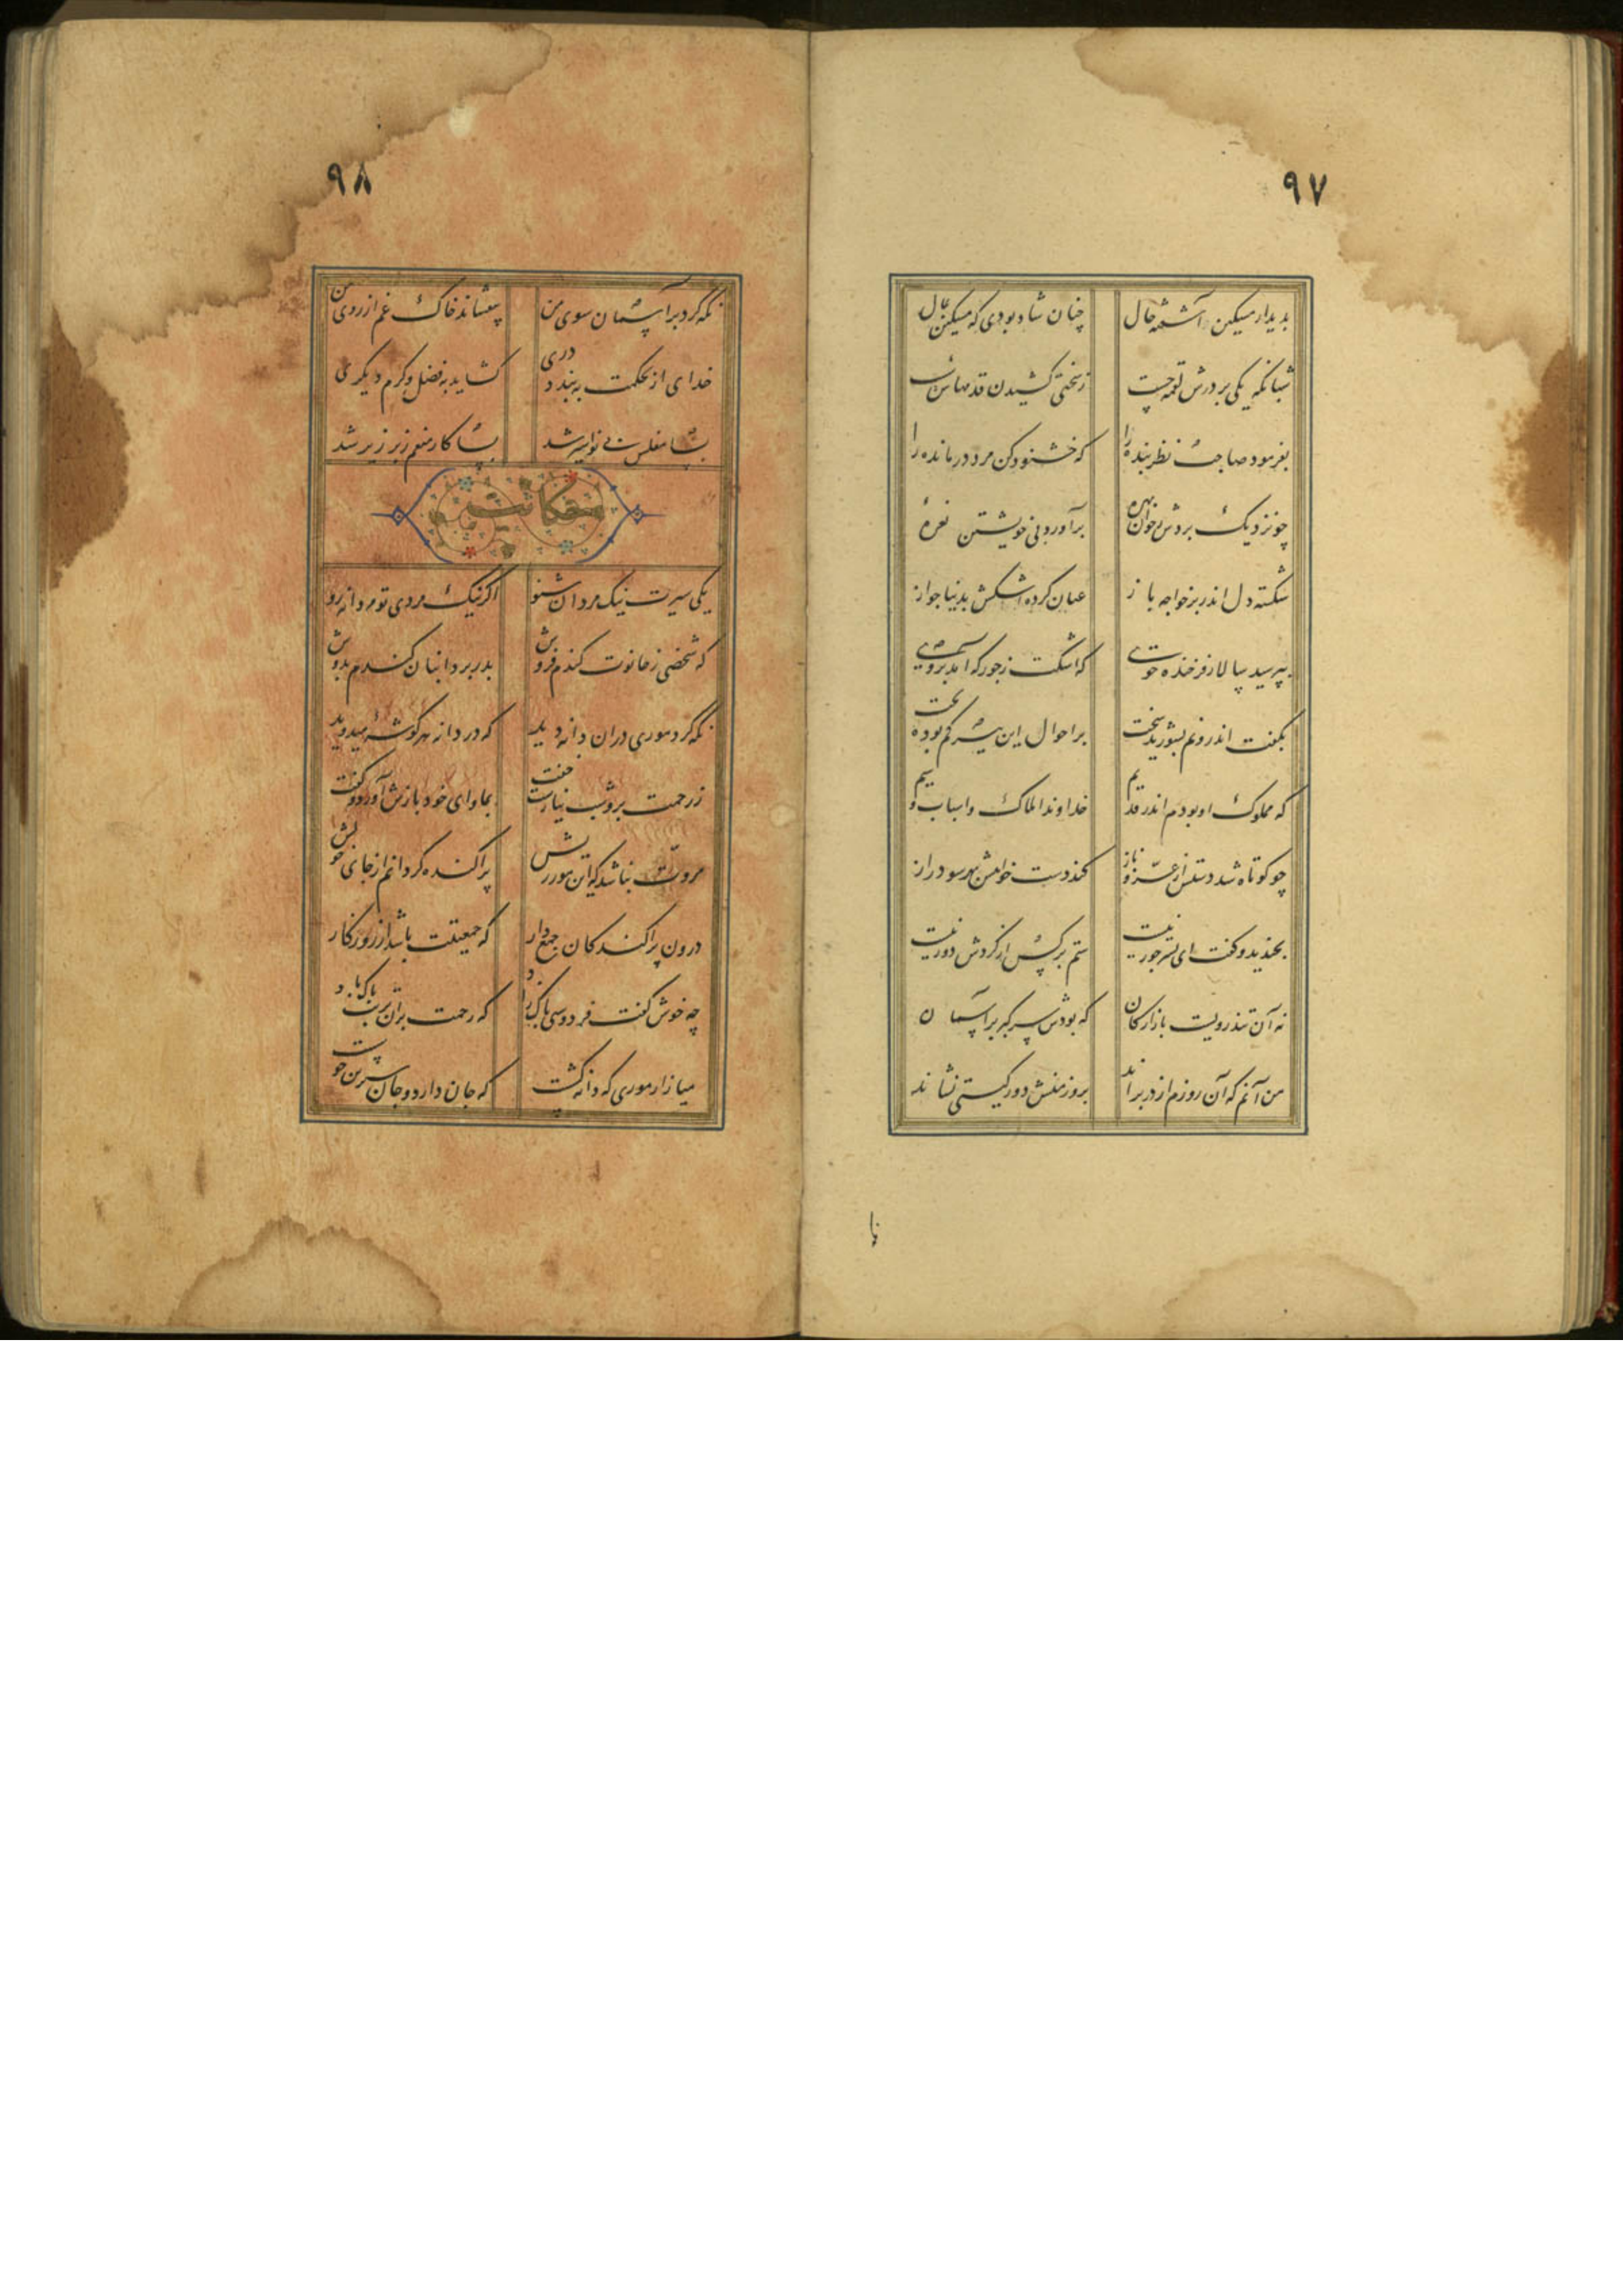 ۹۷
بدیدار مسکین آشفته حال چنان شاد بودی که مسکین بمال
شبانگه یکی بر درش لقمه جست ز سختی کشیدن قدمهاش سست
بفرمود صاحب نظر بنده را که خشنود کن مرد درمانده را
چو نزدیک بردش ز خوان بهره برآورد بی خویشتن نعره
شکسته دل اندر بر خواجه باز عیان کرده اشکش بدیباجه راز
بپرسید سالار فرخنده خوی که اشکت ز جور که آمد بروی
بگفت اندرونم بشورید سخت بر احوال این پیر شوریده بخت
که مملوک او بودم اندر قدیم خداوند املاک و اسباب و سیم
چو کوتاه شد دستش از عز و ناز کند دست خواهش بهر سو دراز
بخندید و گفت ای پسر جور نیست ستم بر کس از گردش دور نیست
نه آن تندرویست بازارگان که بودش سر کبر بر آسمان
من آنم که آن روزم از در براند بروز منش دور گیتی نشاند
نگا
۹۸
نگه کرد بر آسمان سوی من بیفشاند خاک غم از روی من
خدای از بحکمت ببندد دری گشاید بفضل و کرم دیگری
بسا مفلس بی نوا سیر شد بسا کار منعم زبر زیر شد
حکایت
یکی سیرت نیک مردان شنو اگر نیک مردی تو مردانه رو
که شخصی ز حانوت گندم فروش بدر برد انبان گندم بدوش
نگه کرد موری در آن دانه دید که در دانه هر گوشه میدوید
ز رحمت برو شب نیارست خفت بماوای خود بازش آورد و گفت
مروت نباشد که این مور ریش پراکنده گردانم از جای خویش
درون پراکندگان جمع دار که جمعیتت باشد از روزگار
چه خوش گفت فردوسی پاک زاد که رحمت بر آن تربت پاک باد
میازار موری که دانه کشست که جان دارد و جان شیرین خوشست